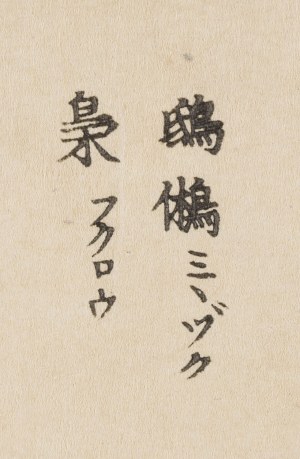 鴟鵂 ミヽヅク
梟 フクロウ